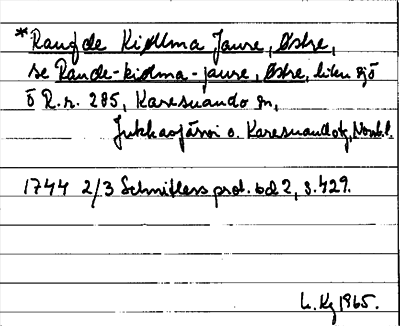 *Raufde Kidlma Jaure, Østre,
se Raude-kidma-jaure, Østre, liten sjö
ö R.r. 285, Karesuando sn,
Jukkasjärvi o. Karesuando tg, Norrb.l.
1744 2/3 Schnitlers prot. bd 2, s. 429.
L. Kg 1965.